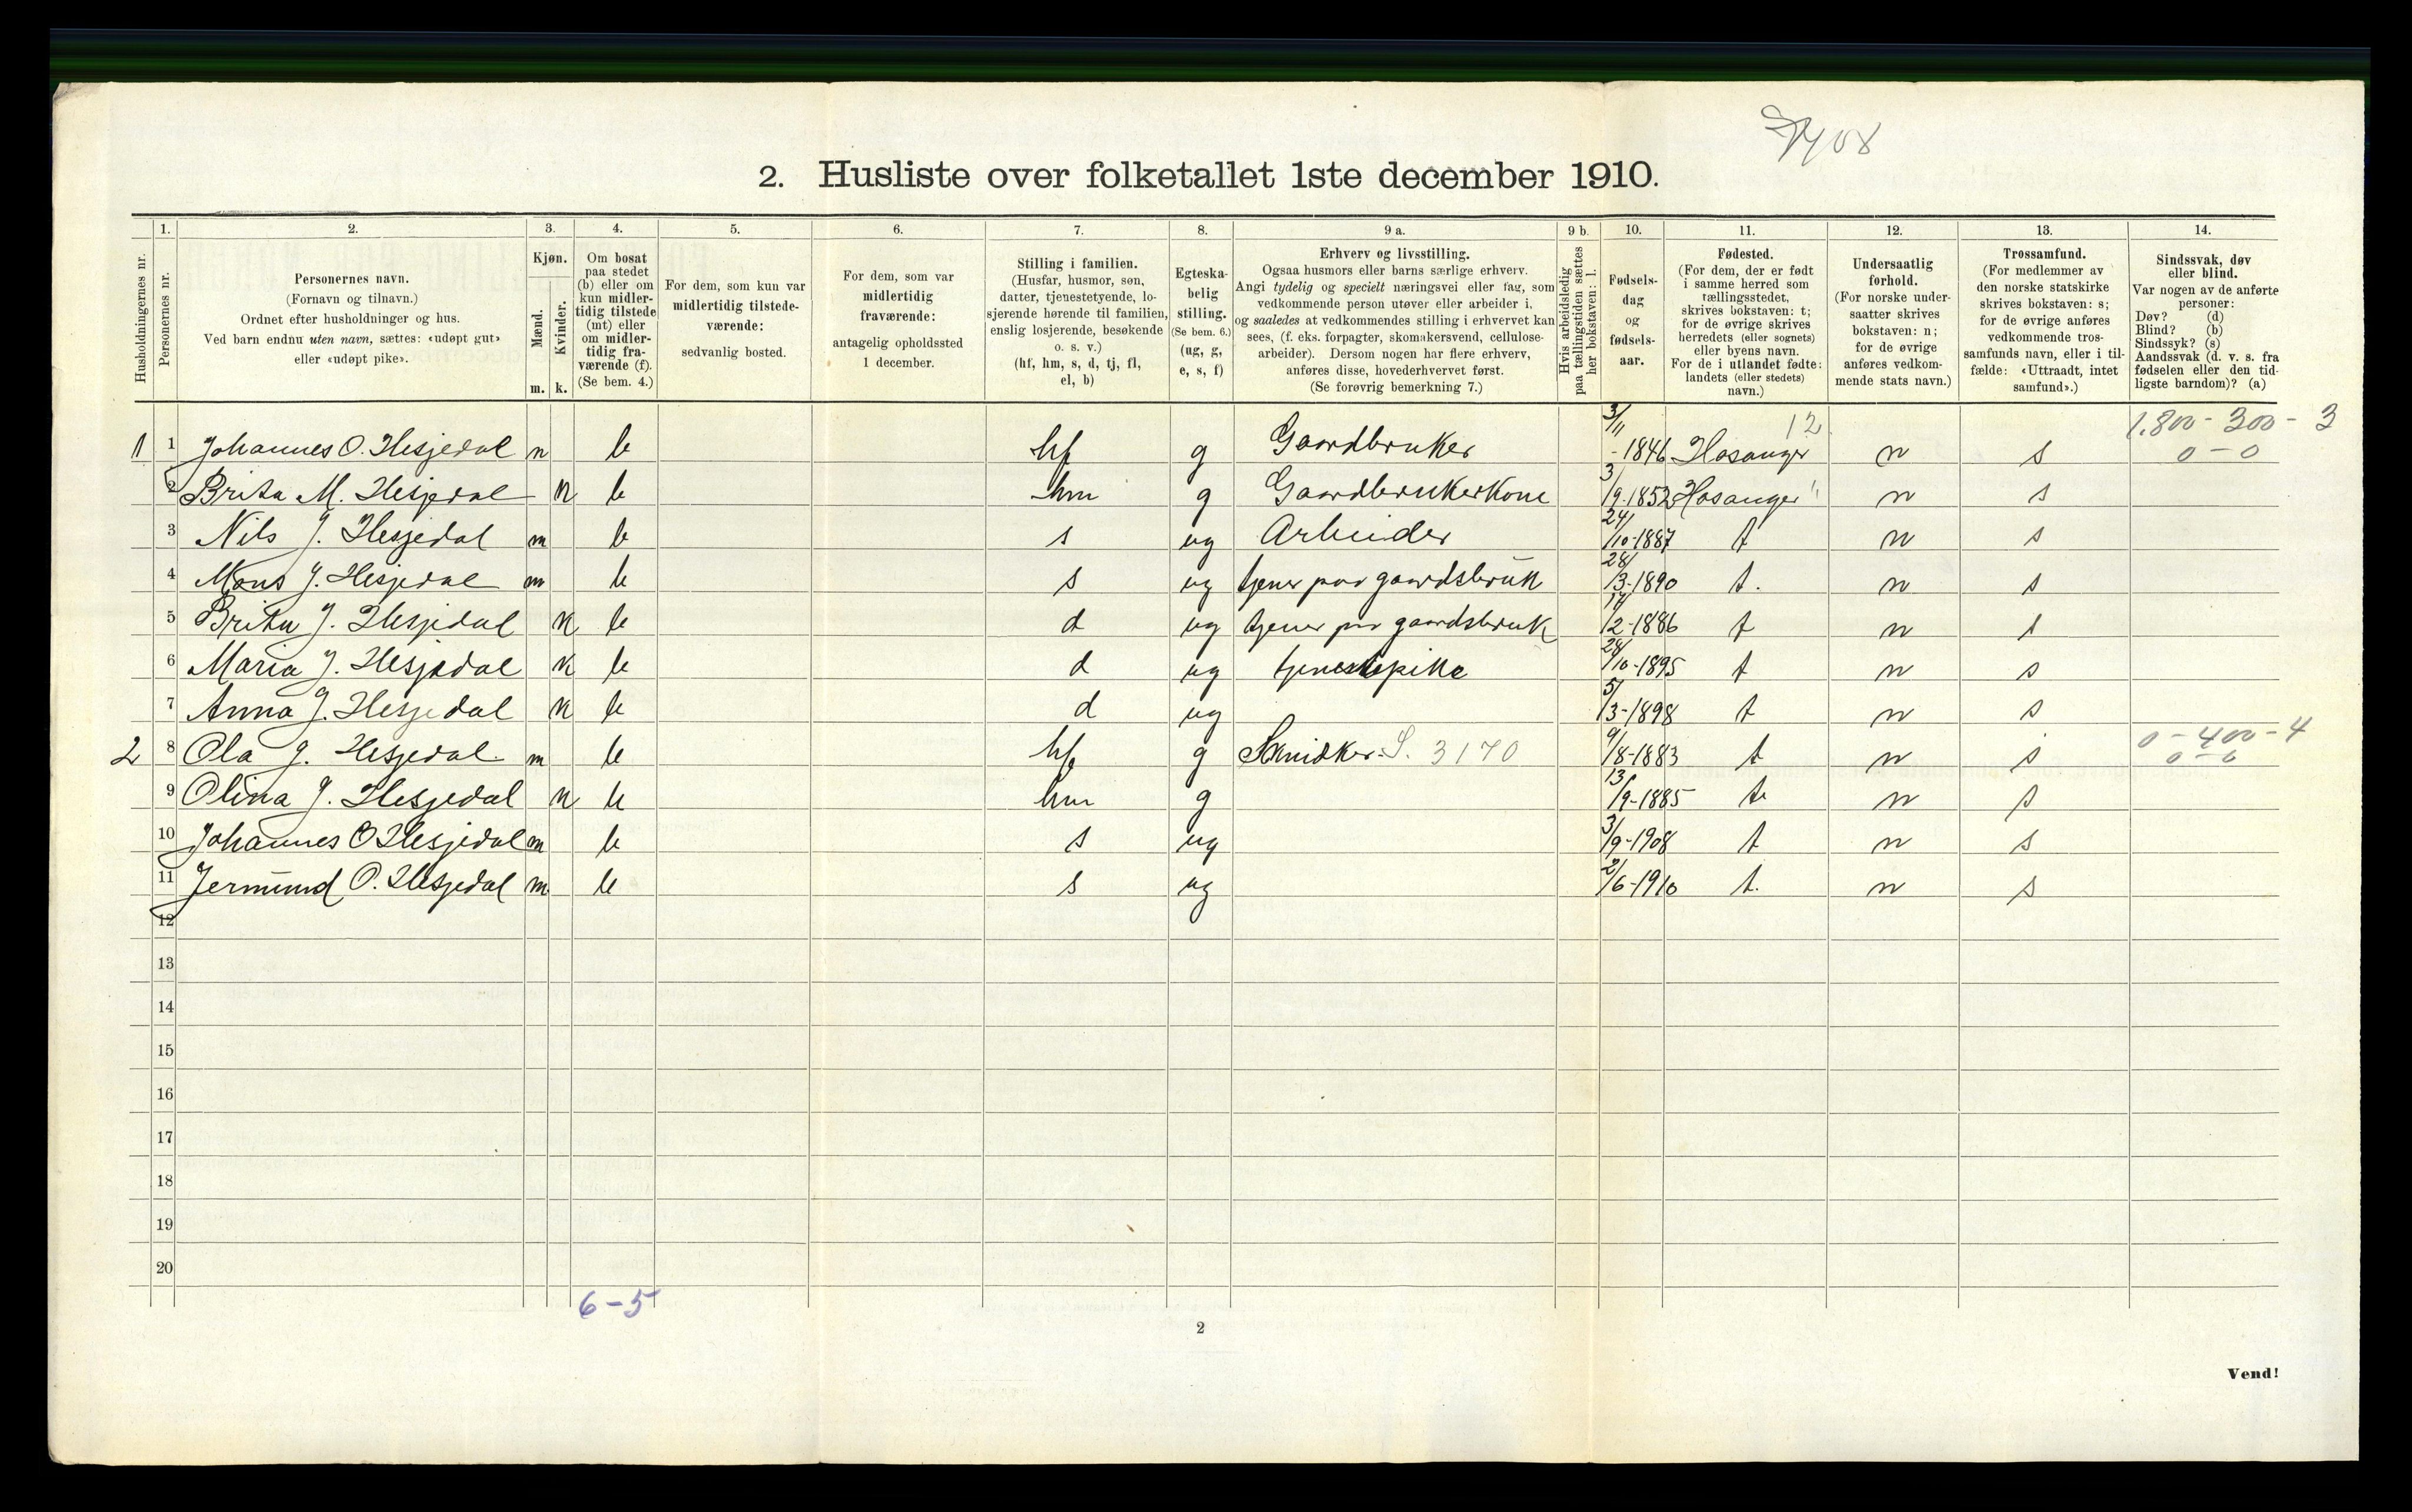 2. Husliste over folketallet 1ste december 1910.
1. 2. 3. 4. 5. 6. 7. 8. 9 a. 9 b. 10. 11. 12. 13. 14.
Husholdningernes nr.
Personernes nr.
Personernes navn.
(Fornavn og tilnavn.)
Ordnet efter husholdninger og hus.
Ved barn endnu uten navn, sættes: «udøpt gut»
eller «udøpt pike».
Kjøn.
Mænd.
m.
Kvinder.
k.
Om bosat
paa stedet
(b) eller om
kun midler-
tidig tilstede
(mt) eller
om midler-
tidig fra-
værende (f).
(Se bem. 4.)
For dem, som kun var
midlertidig tilstede-
værende:
sedvanlig bosted.
For dem, som var
midlertidig
fraværende:
antagelig opholdssted
1 december.
Stilling i familien.
(Husfar, husmor, søn,
datter, tjenestetyende, lo-
sjerende hørende til familien,
enslig losjerende, besøkende
o. s. v.)
(hf, hm, s, d, tj, fl,
el, b)
Egteska-
belig
stilling.
(Se bem. 6.)
(ug, g,
e, s, f)
Erhverv og livsstilling.
Ogsaa husmors eller barns særlige erhverv.
Angi tydelig og specielt næringsvei eller fag, som
vedkommende person utøver eller arbeider i,
og saaledes at vedkommendes stilling i erhvervet kan
sees, (f. eks. forpagter, skomakersvend, cellulose-
arbeider). Dersom nogen har flere erhverv,
anføres disse, hovederhvervet først.
(Se forøvrig bemerkning 7.)
Hvis arbeidsledig
paa tællingstiden sættes
her bokstaven: l.
Fødsels-
dag
og
fødsels-
aar.
Fødested.
(For dem, der er født
i samme herred som
tællingsstedet,
skrives bokstaven: t;
for de øvrige skrives
herredets (eller sognets)
eller byens navn.
For de i utlandet fødte:
landets (eller stedets)
navn.)
Undersaatlig
forhold.
(For norske under-
saatter skrives
bokstaven: n;
for de øvrige
anføres vedkom-
mende stats navn.)
Trossamfund.
(For medlemmer av
den norske statskirke
skrives bokstaven: s;
for de øvrige anføres
vedkommende tros-
samfunds navn, eller i til-
fælde: «Uttraadt, intet
samfund».)
Sindssvak, døv
eller blind.
Var nogen av de anførte
personer:
Døv? (d)
Blind? (b)
Sindssyk? (s)
Aandssvak (d. v. s. fra
fødselen eller den tid-
ligste barndom)? (a)
12 1.800 - 300 - 3
1 1 Johannes O. Hesjedal m b hf g Gaardbruker 3/11 - 1846 Hosanger n s 0 - 0
2 Brita M. Hesjedal k b hm g Gaardbrukerkone 3/9-1852 Hosanger " n s
3 Nils J. Hesjedal m b s ug Arbeider 24/10-1887 t n s
4 Mons J. Hesjedal m b s ug tjener paa gaardsbruk 28/3-1890 t. n s
5 Brita J. Hesjedal k b d ug tjener paa gaardsbruk 17/2-1886 t n s
6 Maria J. Hesjedal k b d ug tjenestepike 28/10-1895 t n s
7 Anna J. Hesjedal k b d ug 5/3-1898 t n s
2 8 Ola J. Hesjedal m b hf g Snidker S. 3170 9/8-1883 t n s 0 - 400 - 4
0 - 0
9 Olina J. Hesjedal k b hm g 13/9-1885 t. n s
10 Johannes O Hesjedal m b s ug 3/9-1908 t n s
11 Jermund O. Hesjedal m b s ug 2/6-1910 t. n s
12
13
14
15
16
17
18
19
20
6-5
2
Vend!